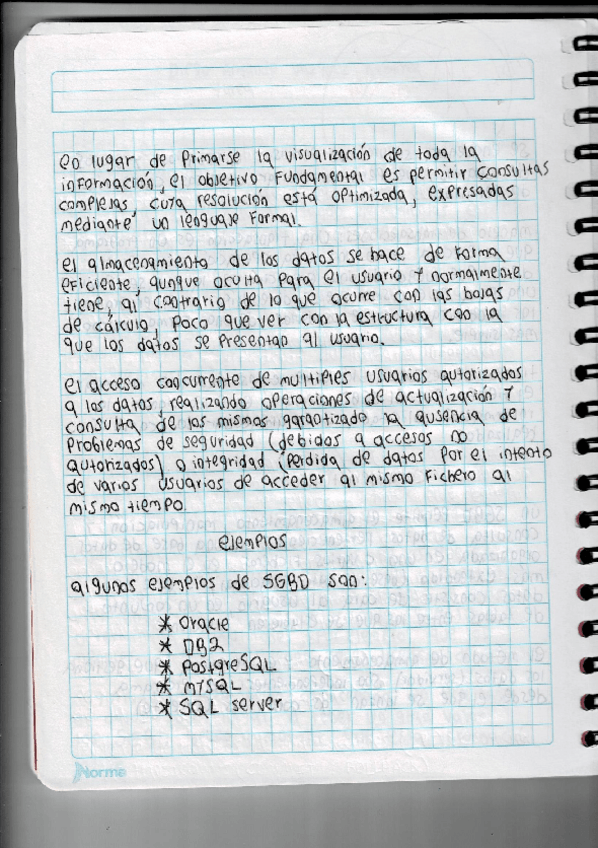 en lugar de Primarse la visualización de toda la
información, el objetivo Fundamental es permitir consultas
complejas, cuya resolución está optimizada, expresadas
mediante un lenguaje Formal.
el almacenamiento de los datos se hace de Forma
eficiente, aunque oculta para el usuario y normalmente
tiene, al contrario de lo que ocurre con las hojas
de cálculo, Poco que ver con la estructura con la
que los datos se Presentan al usuario.
el acceso concurrente de multiples usuarios autorizados
a los datos, realizando operaciones de actualización y
consulta de los mismos garantizado la ausencia de
Problemas de seguridad (debidos a accesos no
autorizados) o integridad (Perdida de datos Por el intento
de varios usuarios de acceder al mismo Fichero al
mismo tiempo.
ejemplos
algunos ejemplos de SGBD son:
* Oracle
* DB2
* PostgreSQL
* MYSQL
* SQL server
Norma